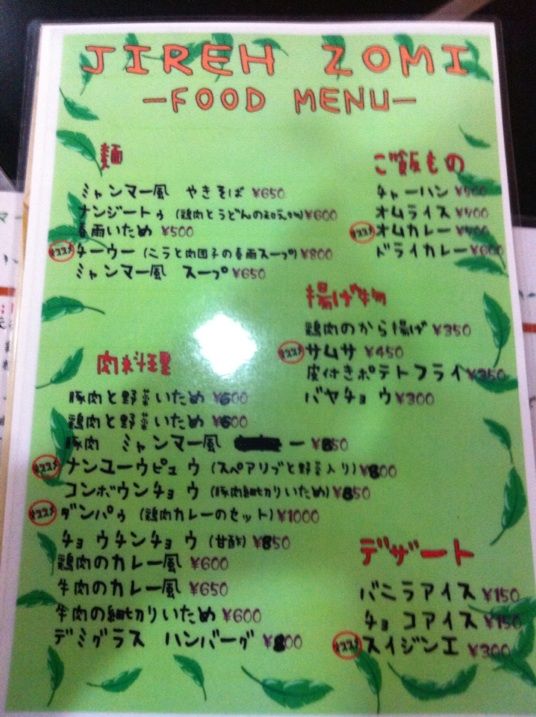 JIREH ZOMI
-FOOD MENU-
麺
ミャンマー風 やきそば ¥650
ナンジートゥ (鶏肉とうどんの和えもの) ¥600
春雨いため ¥500
オススメ チーウー (ニラと肉団子の春雨スープ) ¥800
ミャンマー風 スープ ¥650
肉料理
豚肉と野菜いため ¥600
鶏肉と野菜いため ¥600
豚肉 ミャンマー風 ー ¥850
オススメ ナンユーウピュウ (スペアリブと野菜入り) ¥800
コンボウンチョウ (豚肉細切りいため) ¥850
オススメ ダンパゥ (鶏肉カレーのセット) ¥1000
チョウチンチョウ (甘酢) ¥850
鶏肉のカレー風 ¥600
牛肉のカレー風 ¥650
牛肉の細切りいため ¥600
デミグラス ハンバーグ ¥800
ご飯もの
チャーハン
オムライス ¥400
オススメ オムカレー
ドライカレー ¥600
揚げ物
鶏肉のから揚げ ¥350
オススメ サムサ ¥450
皮付きポテトフライ ¥350
バヤチョウ ¥300
デザート
バニラアイス ¥150
チョコアイス ¥150
オススメ スイジンエ ¥300